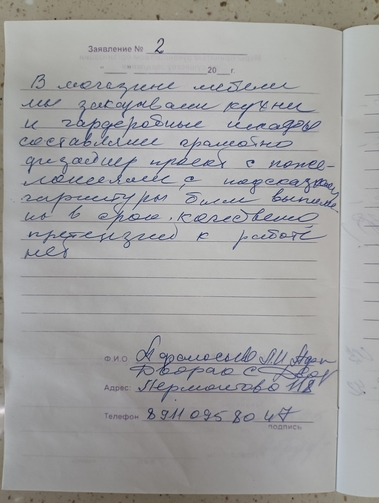 Заявление № 2
20 г
В магазине мебели
мы заказывали кухни
и гардеробные шкафы
составляли грамотно
дизайнер проект с поже-
ланиями, с подсказками,
гарнитуры были выполне-
ны в срок, качествено
претензий к работе
нет
Ф.И.О.
Адрес: Лермонтова 118
Телефон 8911 095 80 47
подпись